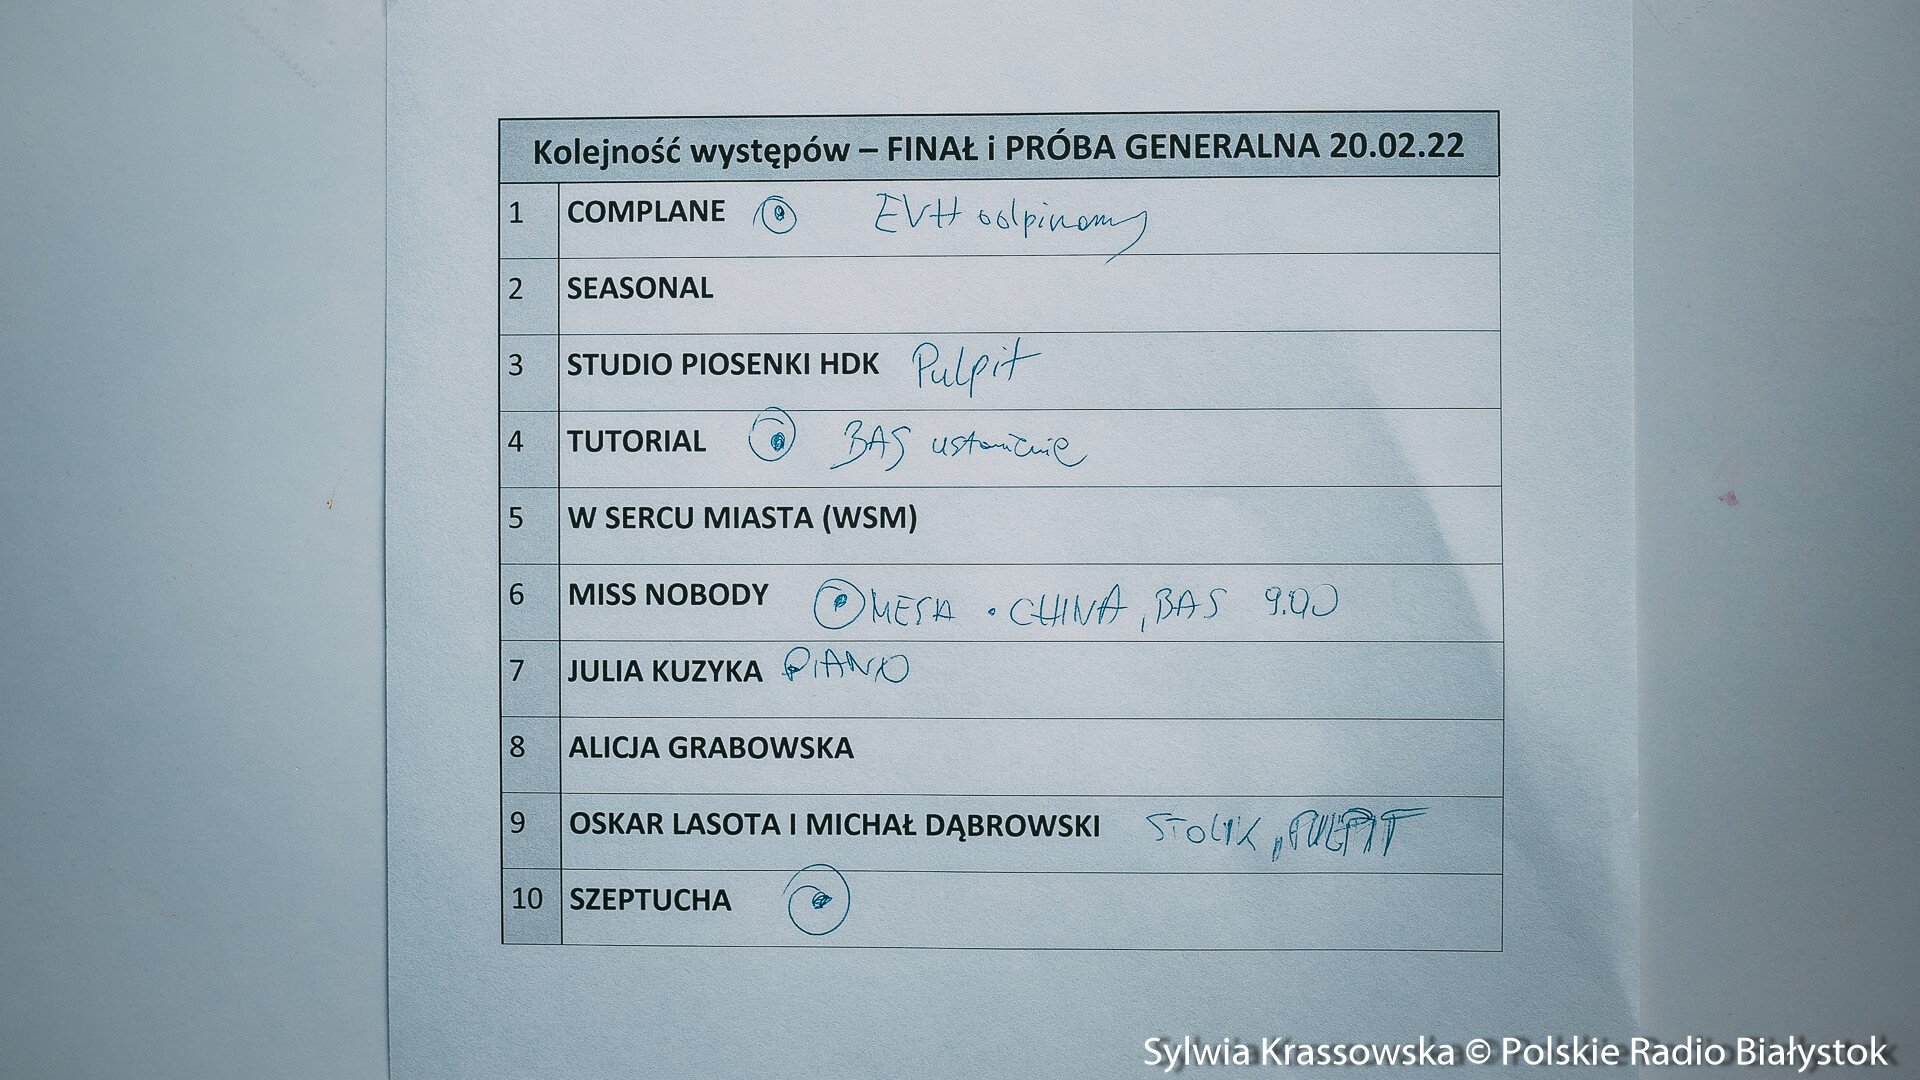 Kolejność występów – FINAŁ i PRÓBA GENERALNA 20.02.22
1 COMPLANE EVH odpinamy
2 SEASONAL
3 STUDIO PIOSENKI HDK Pulpit
4 TUTORIAL BAS
5 W SERCU MIASTA (WSM)
6 MISS NOBODY MESA • CHINA, BAS 9.00
7 JULIA KUZYKA PIANO
8 ALICJA GRABOWSKA
9 OSKAR LASOTA I MICHAŁ DĄBROWSKI STOLIK, PULPIT
10 SZEPTUCHA
Sylwia Krassowska © Polskie Radio Białystok